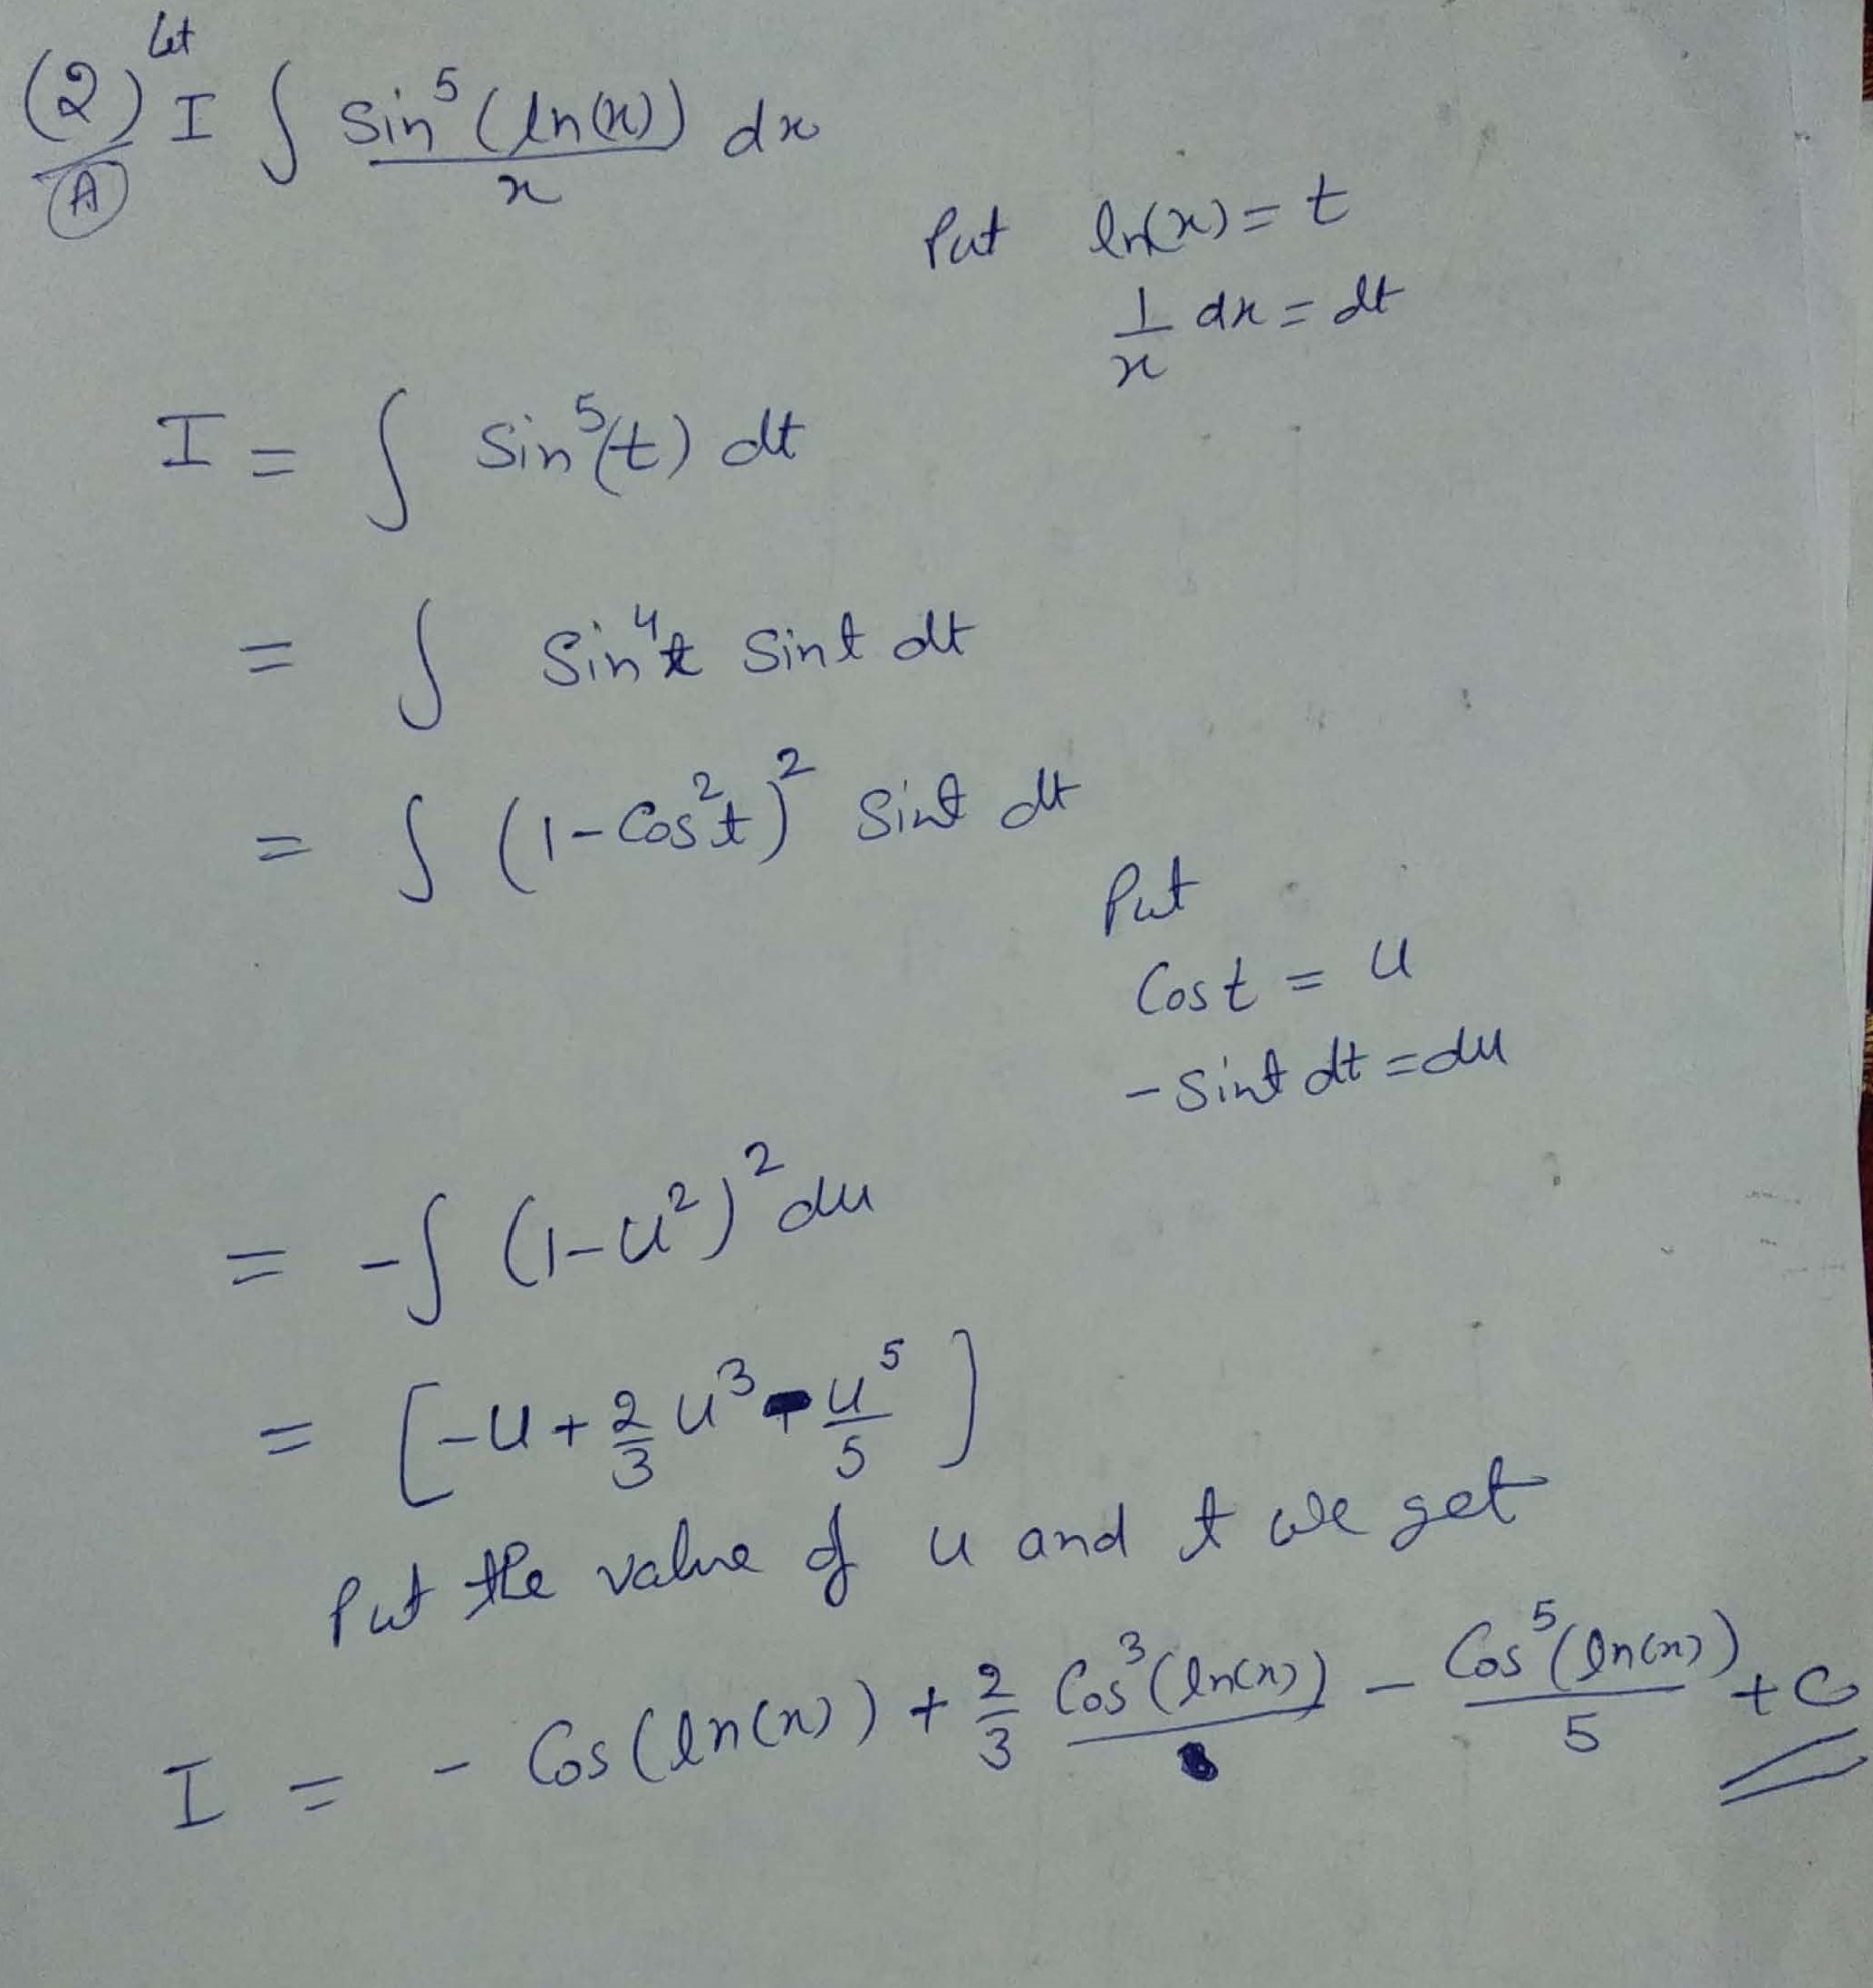 (2) Let I ∫ sin⁵(ln(x))/x dx
(A)
Put ln(x) = t
1/x dx = dt
I = ∫ sin⁵(t) dt
= ∫ sin⁴t sint dt
= ∫ (1-Cos²t)² sint dt
Put
Cost = u
-sint dt = du
= -∫ (1-u²)² du
= [-u + 2/3 u³ - u⁵/5]
Put the value of u and t we get
I = - Cos(ln(x)) + 2/3 Cos³(ln(x)) - Cos⁵(ln(x))/5 + C